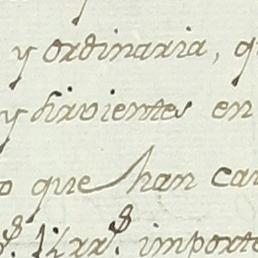 y ordinaria, q
y sirvientes en
o que han cau
importe